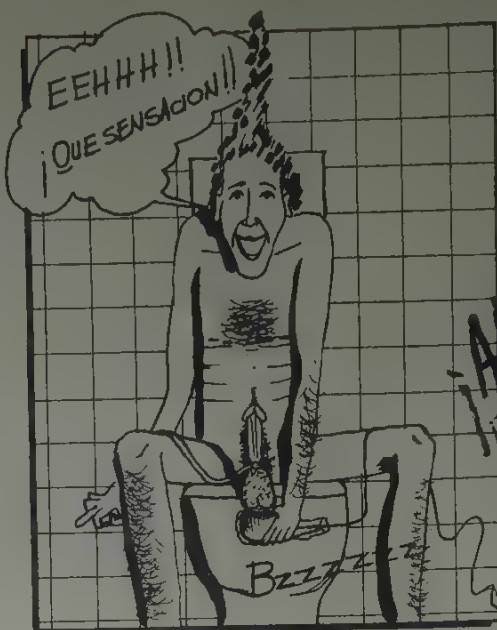 EEHHH!!
¡QUE SENSACION!!
¡A
BZZZZZZZ